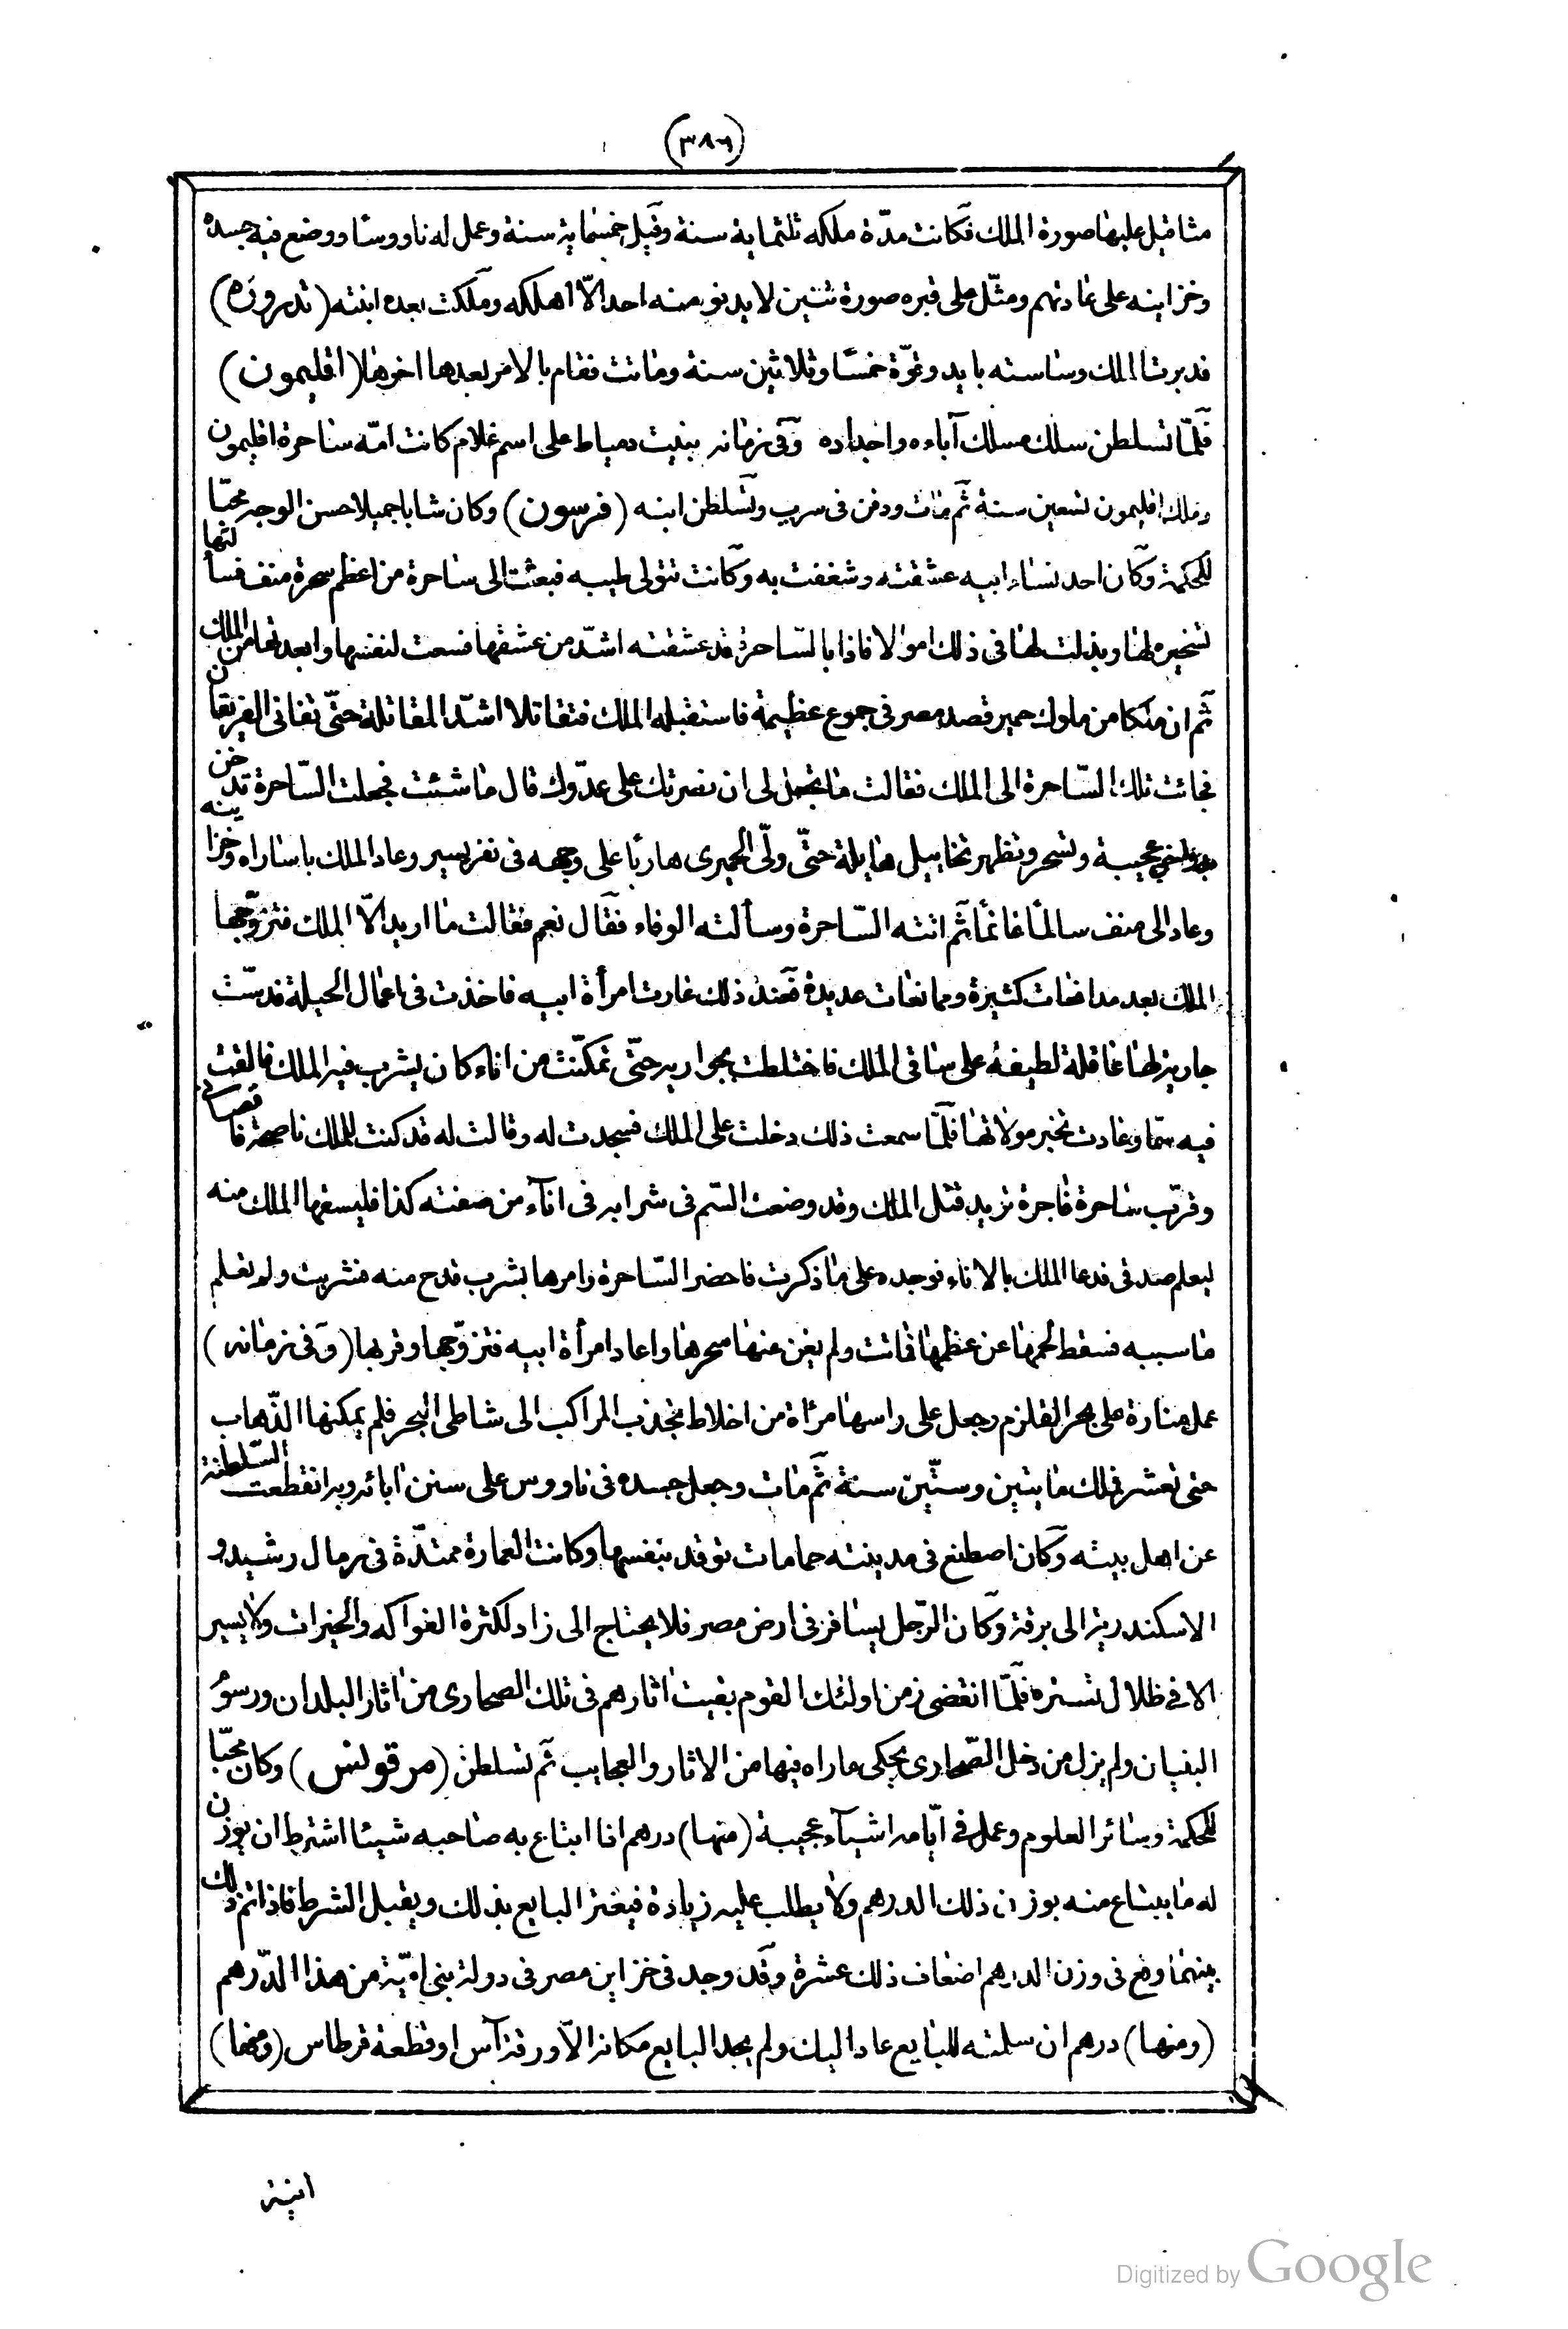 (٣٨٦)
مثاقيل عليها صورة الملك فكانت مدّة ملكه ثلثماية سنة وقيل خمسماية سنة وعمل له ناووسا ووضع فيه جسده
وخزاينه على عادتهم ومثّل على قبره صورة تنين لا يدنو منه احد الّا اهلكه وملكت بعده ابنته (تدروزه)
فدبرت الملك وساسته بايد وقوّة خمسا وثلاثين سنة وماتت فقام بالامر بعدها اخوها (اقليمون)
فلمّا تسلطن سلك مسلك آباءه واجداده وفى زمانه بنيت دمياط على اسم غلام كانت امّه ساحرة اقليمون
وملك اقليمون تسعين سنة ثم مات ودفن فى سرب وتسلطن ابنه (فرسون) وكان شابا جميلا حسن الوجه محبّا
للحكمة وكان احد نساء ابيه عشقته وشغفت به وكانت تتولى طيبه فبعثت الى ساحرة من اعظم سحرة منف فسألتها
تسخيره لها وبذلت لها فى ذلك اموالا فاذا بالسّاحرة قد عشقته اشدّ من عشقها فسعت لنفسها وابعدتها من الملك
ثم ان ملكا من ملوك حمير قصد مصر فى جموع عظيمة فاستقبله الملك فتقاتلا اشدّ المقاتلة حتّى تفانى الفريقان
فجائت تلك السّاحرة الى الملك فقالت ما تجعل لى ان نصرتك على عدّوك قال ما شئت فجعلت السّاحرة تدخن
عجيبة وتسحر وتظهر تخاييل هايلة حتّى ولّى الحميرى هاربا على وجهه فى نفر يسير وعاد الملك باساراه وخزاينه
وعاد الى منف سالماً غانماً ثم اتته السّاحرة وسألته الوفاء فقال نعم فقالت ما اريد الّا الملك فتزوّجها
الملك بعد مدافعات كثيرة وممانعات عديدة فعند ذلك غارت امرأة ابيه فاخذت فى اعمال الحيلة فدسّت
جارية لها عاقلة لطيفة على ساقى الملك فاختلطت بجواريه حتّى تمكّنت من اناء كان يشرب فيه الملك فالقت
فيه سمّا وعادت تخبر مولاتها فلمّا سمعت ذلك دخلت على الملك فسجدت له وقالت له قد كنت للملك ناصحة فاقصانى
وقرّب ساحرة فاجرة تريد قتل الملك وقد وضعت السّم فى شرابه فى اناء من صفته كذا فليسقها الملك منه
ليعلم صدقى فدعا الملك بالاناء فوجده على ما ذكرت فاحضر السّاحرة وامرها بشرب قدح منه فشربت ولم تعلم
ما سببه فسقط لحمها عن عظمها فماتت ولم يغن عنها سحرها واعاد امرأة ابيه فتزوّجها وقربها (وفى زمانه)
عمل منارة على بحر القلزم وجعل على راسها مرآة من اخلاط تجذب المراكب الى شاطى البحر فلم يمكنها الذّهاب
حتى تعشر فملك مايتين وستّين سنة ثمّ مات وجعل جسده فى ناووس على سنن ابائه وبه انقطعت السّلطنة
عن اهل بيته وكان اصطنع فى مدينته حمامات توقد بنفسها وكانت العمارة ممتدّة فى رمال رشيد و
الاسكندرية الى برقة وكان الرّجل يسافر فى ارض مصر فلا يحتاج الى زاد لكثرة الفواكه والخيرات ولا يسير
الا فى ظلال تستره فلمّا انقضى زمن اولئك القوم بقيت اثارهم فى تلك الصحارى من اثار البلدان ورسوم
البنيان ولم يزل من دخل الصّحارى يحكى ما راه فيها من الاثار والعجايب ثم تسلطن (مرقولس) وكان محبّا
للحكمة وسائر العلوم وعمل فى ايّامه اشياء عجيبة (منها) درهم اذا ابتاع به صاحبه شيئا اشترط ان يوزن
له ما يبتاع منه بوزن ذلك الدرهم ولا يطلب عليه زيادة فيغتر البايع بذلك ويقبل الشرط فاذا تم ذلك
بينهما وقع فى وزن الدرهم اضعاف ذلك عشرة وقد وجد فى خزاين مصر فى دولة بنى اميّة من هذا الدّرهم
(ومنها) درهم ان سلمته للبايع عاد اليك ولم يجد البايع مكانه الّا ورقة آس او قطعة قرطاس (ومنها)
انية
Digitized by Google